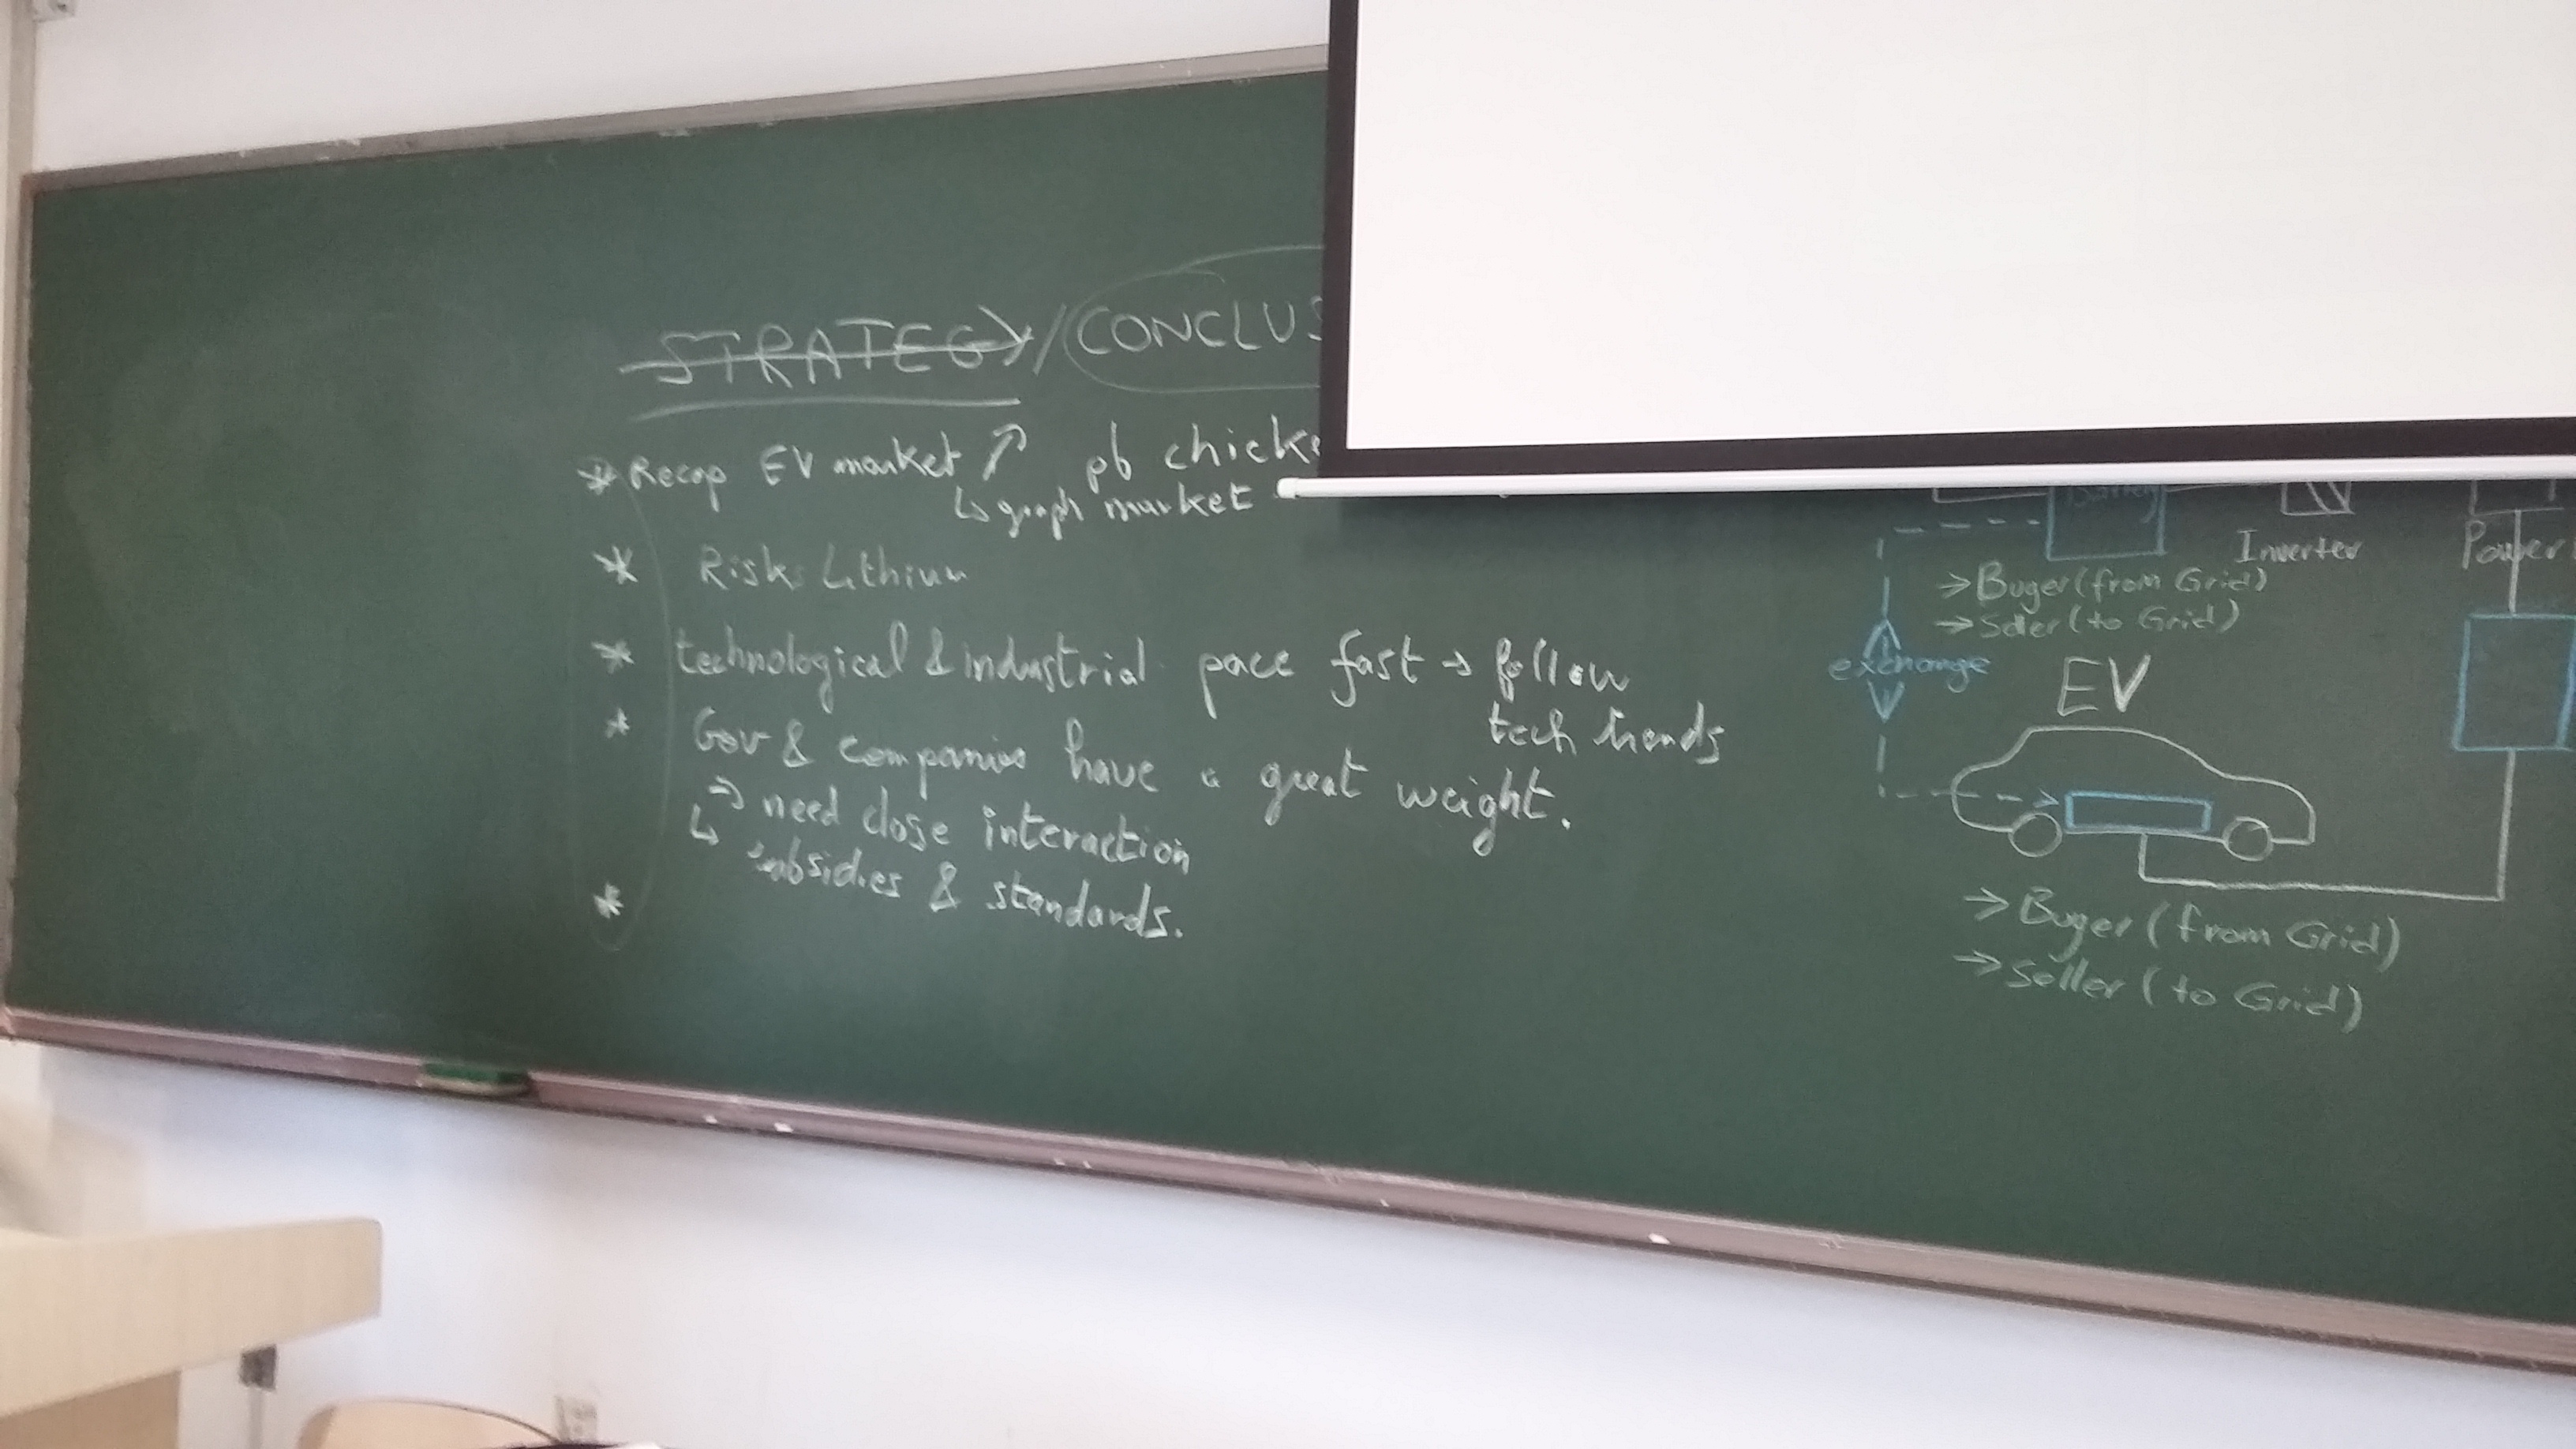 STRATEGY / CONCLUS
* Recap EV market ↗ pb chicke
↳ graph market
* Risks Lithium
* technological & industrial pace fast → follow
tech trends
* Gov & companies have a great weight.
→ need close interaction
↳ subsidies & standards.
*
Battery
Inverter
Power
→ Buyer (from Grid)
→ Seller (to Grid)
exchange
EV
→ Buyer (from Grid)
→ Seller (to Grid)